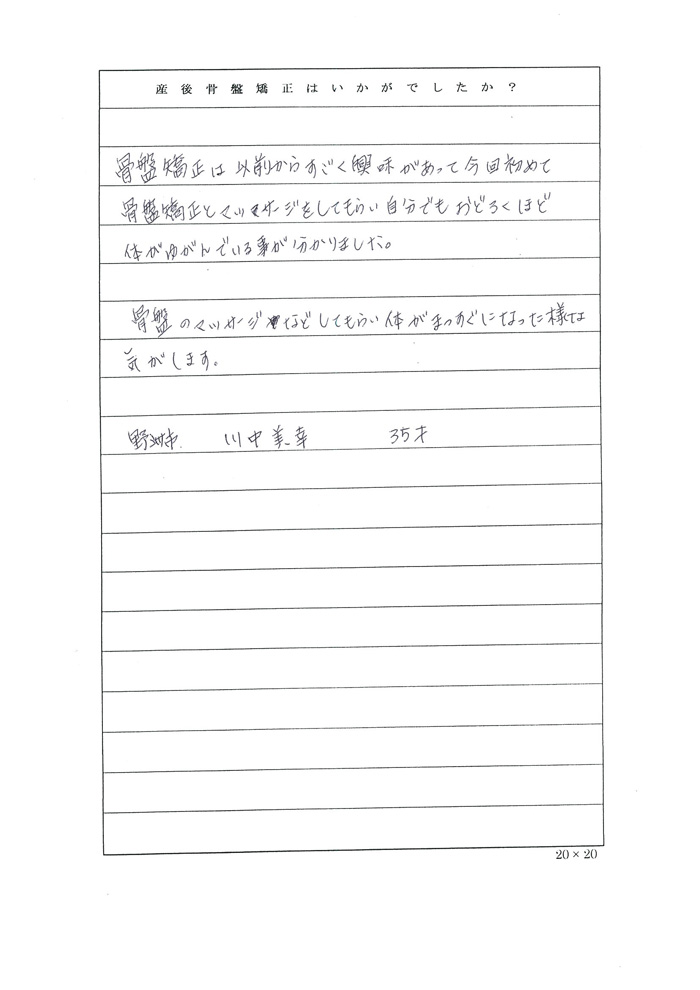 産後骨盤矯正はいかがでしたか？
骨盤矯正は以前からすごく興味があって今回初めて
骨盤矯正とマッサージをしてもらい自分でもおどろくほど
体がゆがんでいる事が分かりました。
骨盤のマッサージなどしてもらい体がまっすぐになった様な
気がします。
川中美幸 35才
20×20